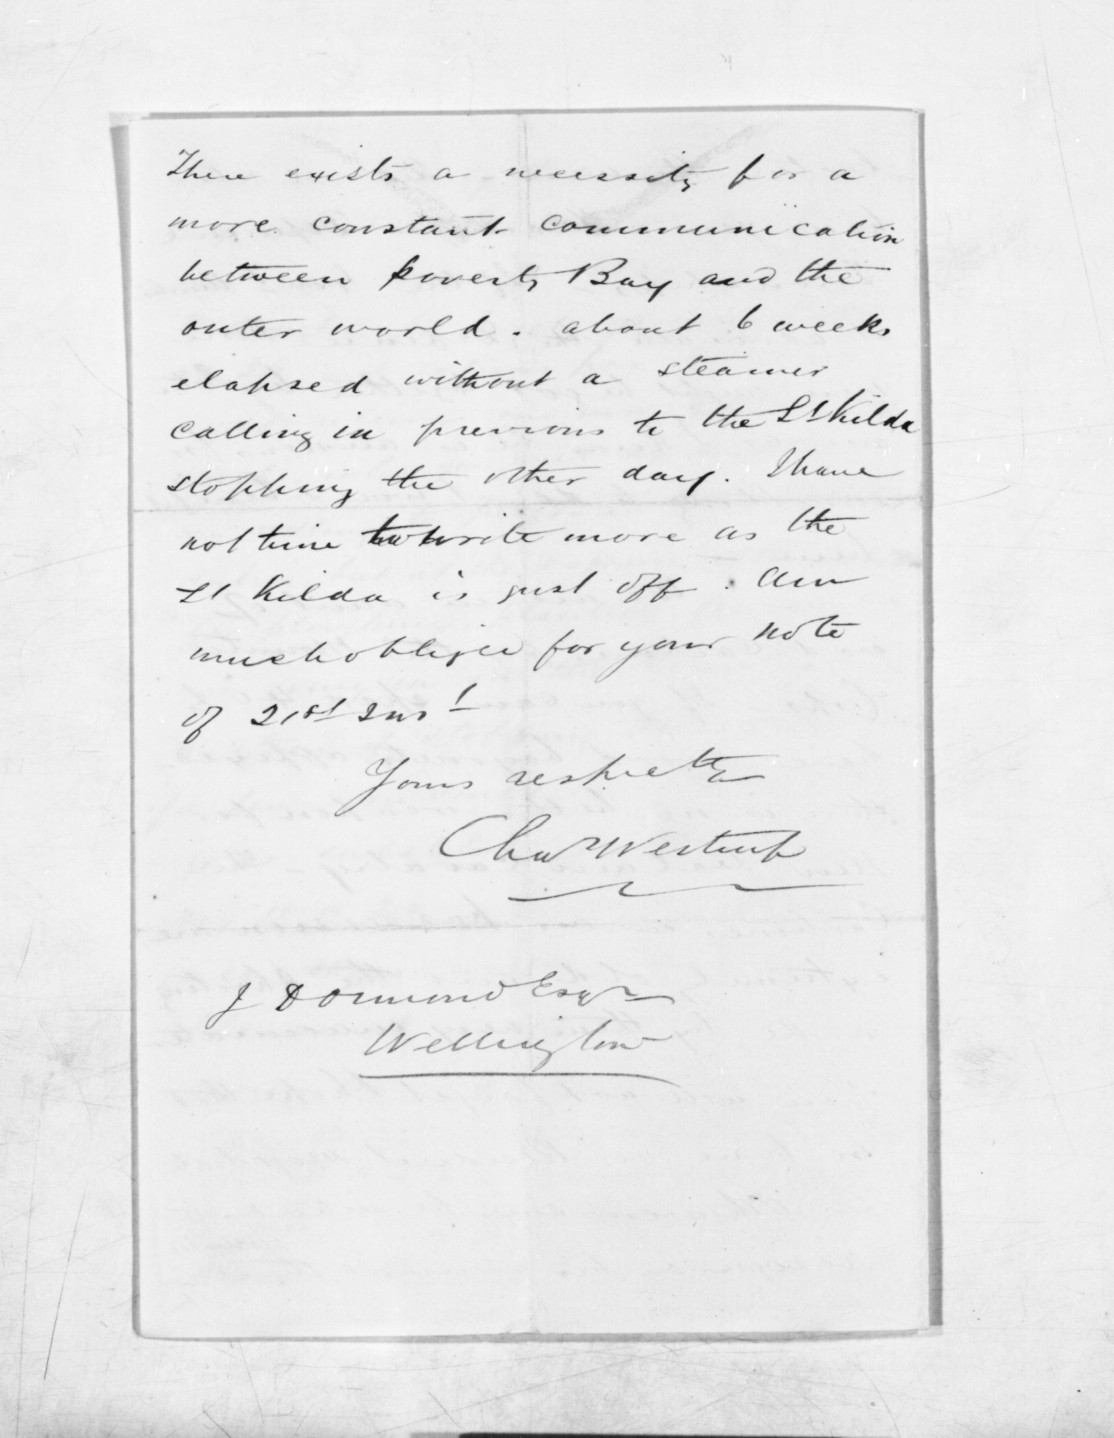 There exists a necessity for a
more constant communication
between Poverty Bay and the
outer world. about 6 weeks
elapsed without a steamer
calling in previous to the St Kilda
stopping the other day. I have
not time to write more as the
St Kilda is just off. Am
much obliged for your note
of 21st Inst
Yours respectly
Chas Westrup
J D Ormond Esqr
Wellington